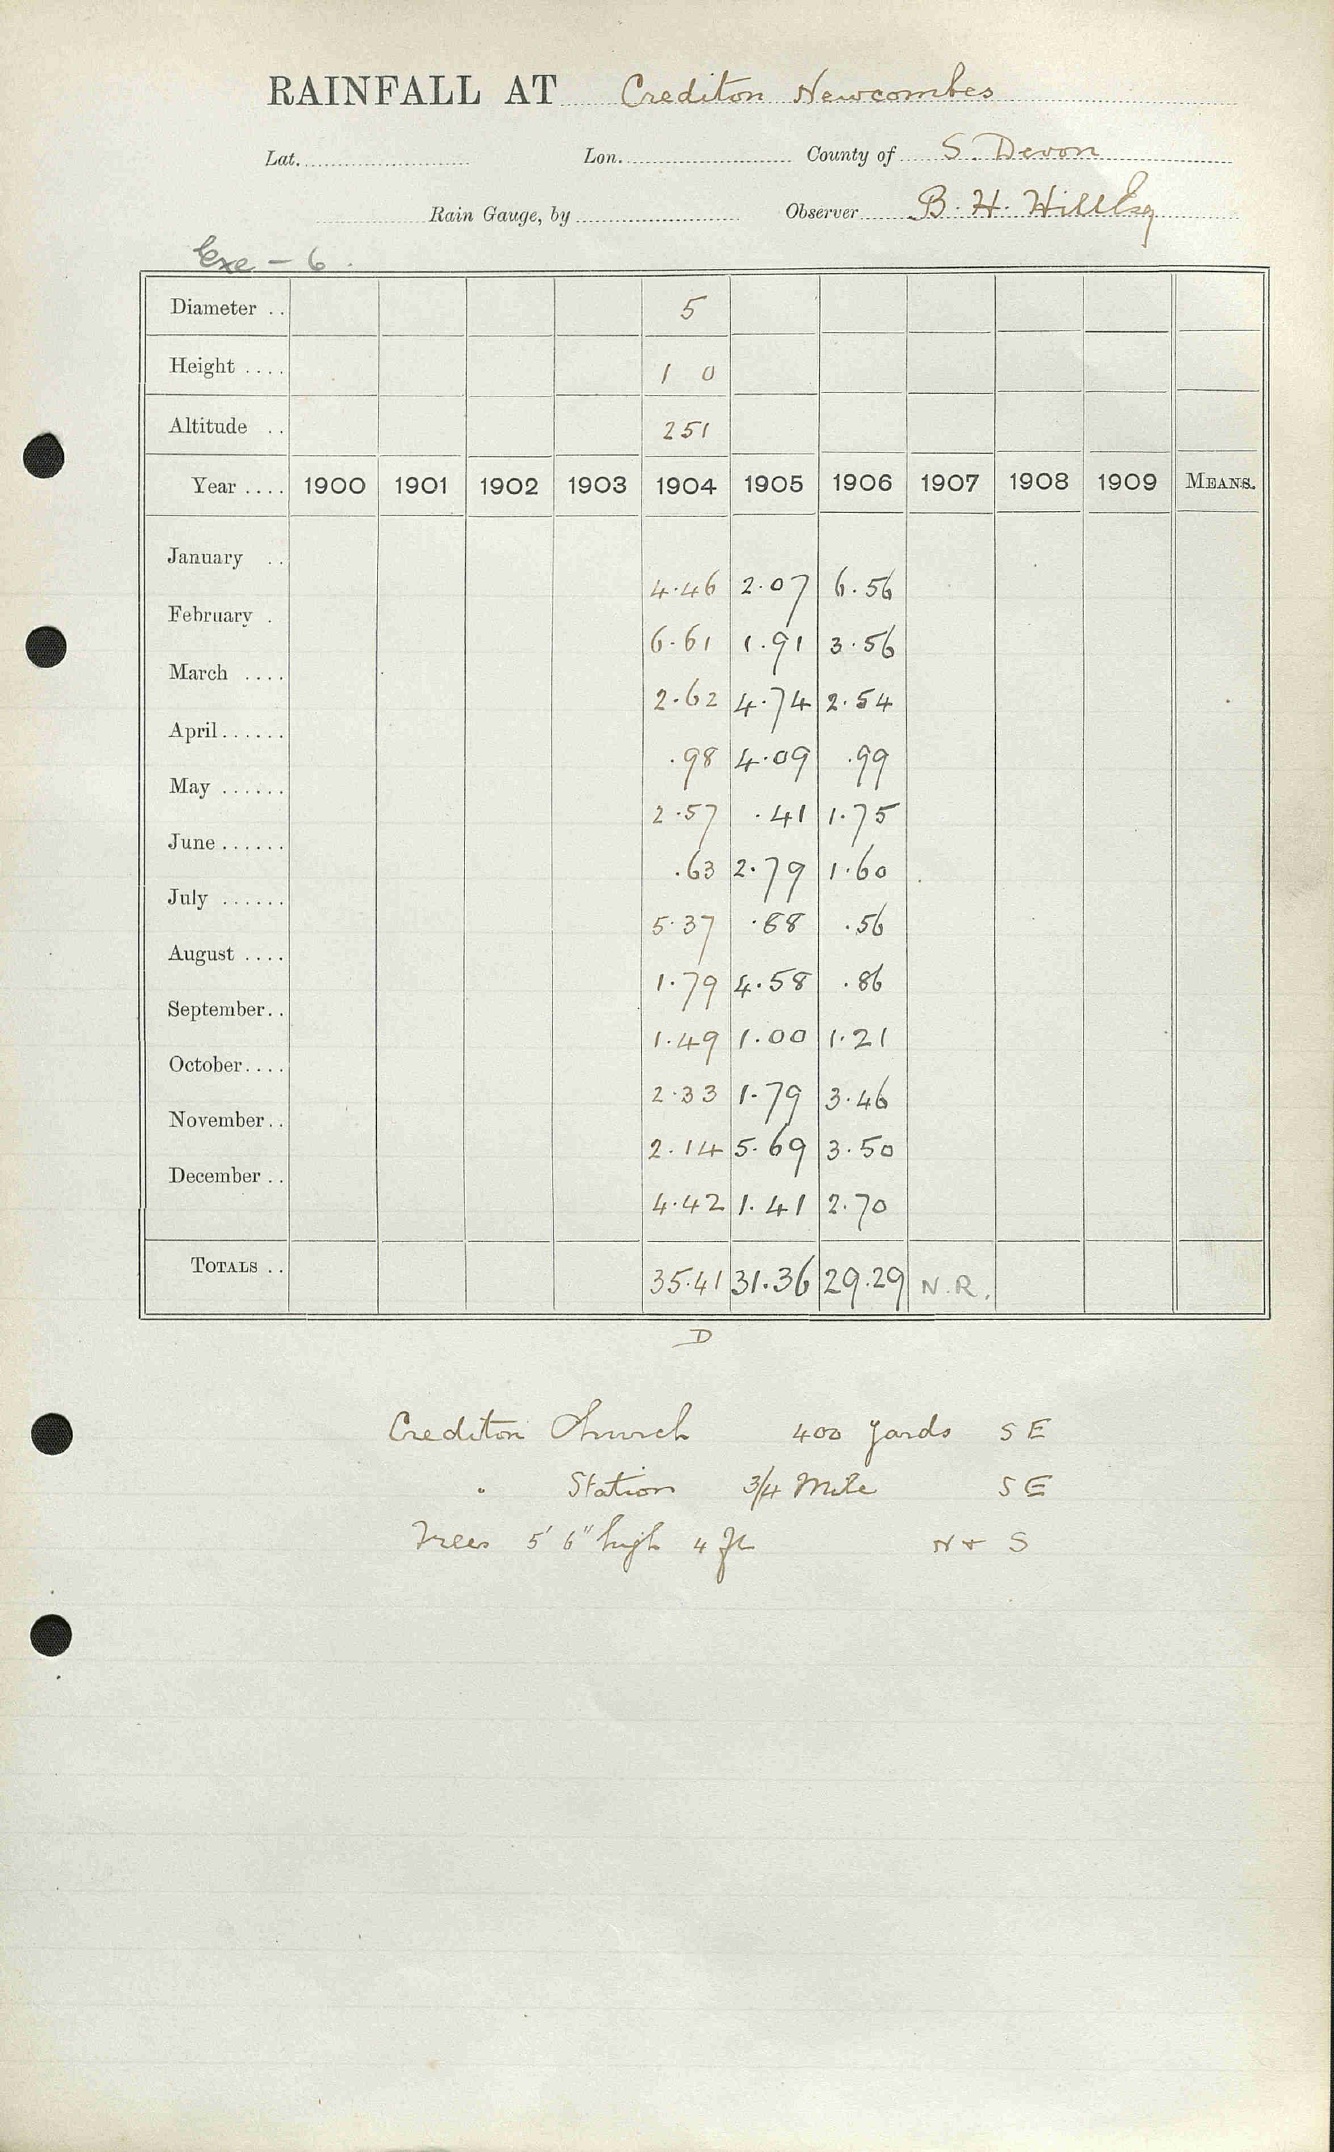 RAINFALL AT Crediton Newcombes
Lat. Lon. County of S. Devon
Rain Gauge, by Observer B. H. Hill Esq
Exe - 6.
Diameter .. 5
Height .... 1 0
Altitude .. 251
Year .... 1900 1901 1902 1903 1904 1905 1906 1907 1908 1909 MEANS.
January .. 4.46 2.07 6.56
February . 6.61 1.91 3.56
March .... 2.62 4.74 2.54
April...... .98 4.09 .99
May ...... 2.57 .41 1.75
June ...... .63 2.79 1.60
July ...... 5.37 .88 .56
August .... 1.79 4.58 .86
September.. 1.49 1.00 1.21
October.... 2.33 1.79 3.46
November.. 2.14 5.69 3.50
December .. 4.42 1.41 2.70
TOTALS .. 35.41 31.36 29.29 N.R.
D
Crediton Church 400 yards S E
" Station 3/4 Mile S E
Trees 5' 6" high 4 ft N & S